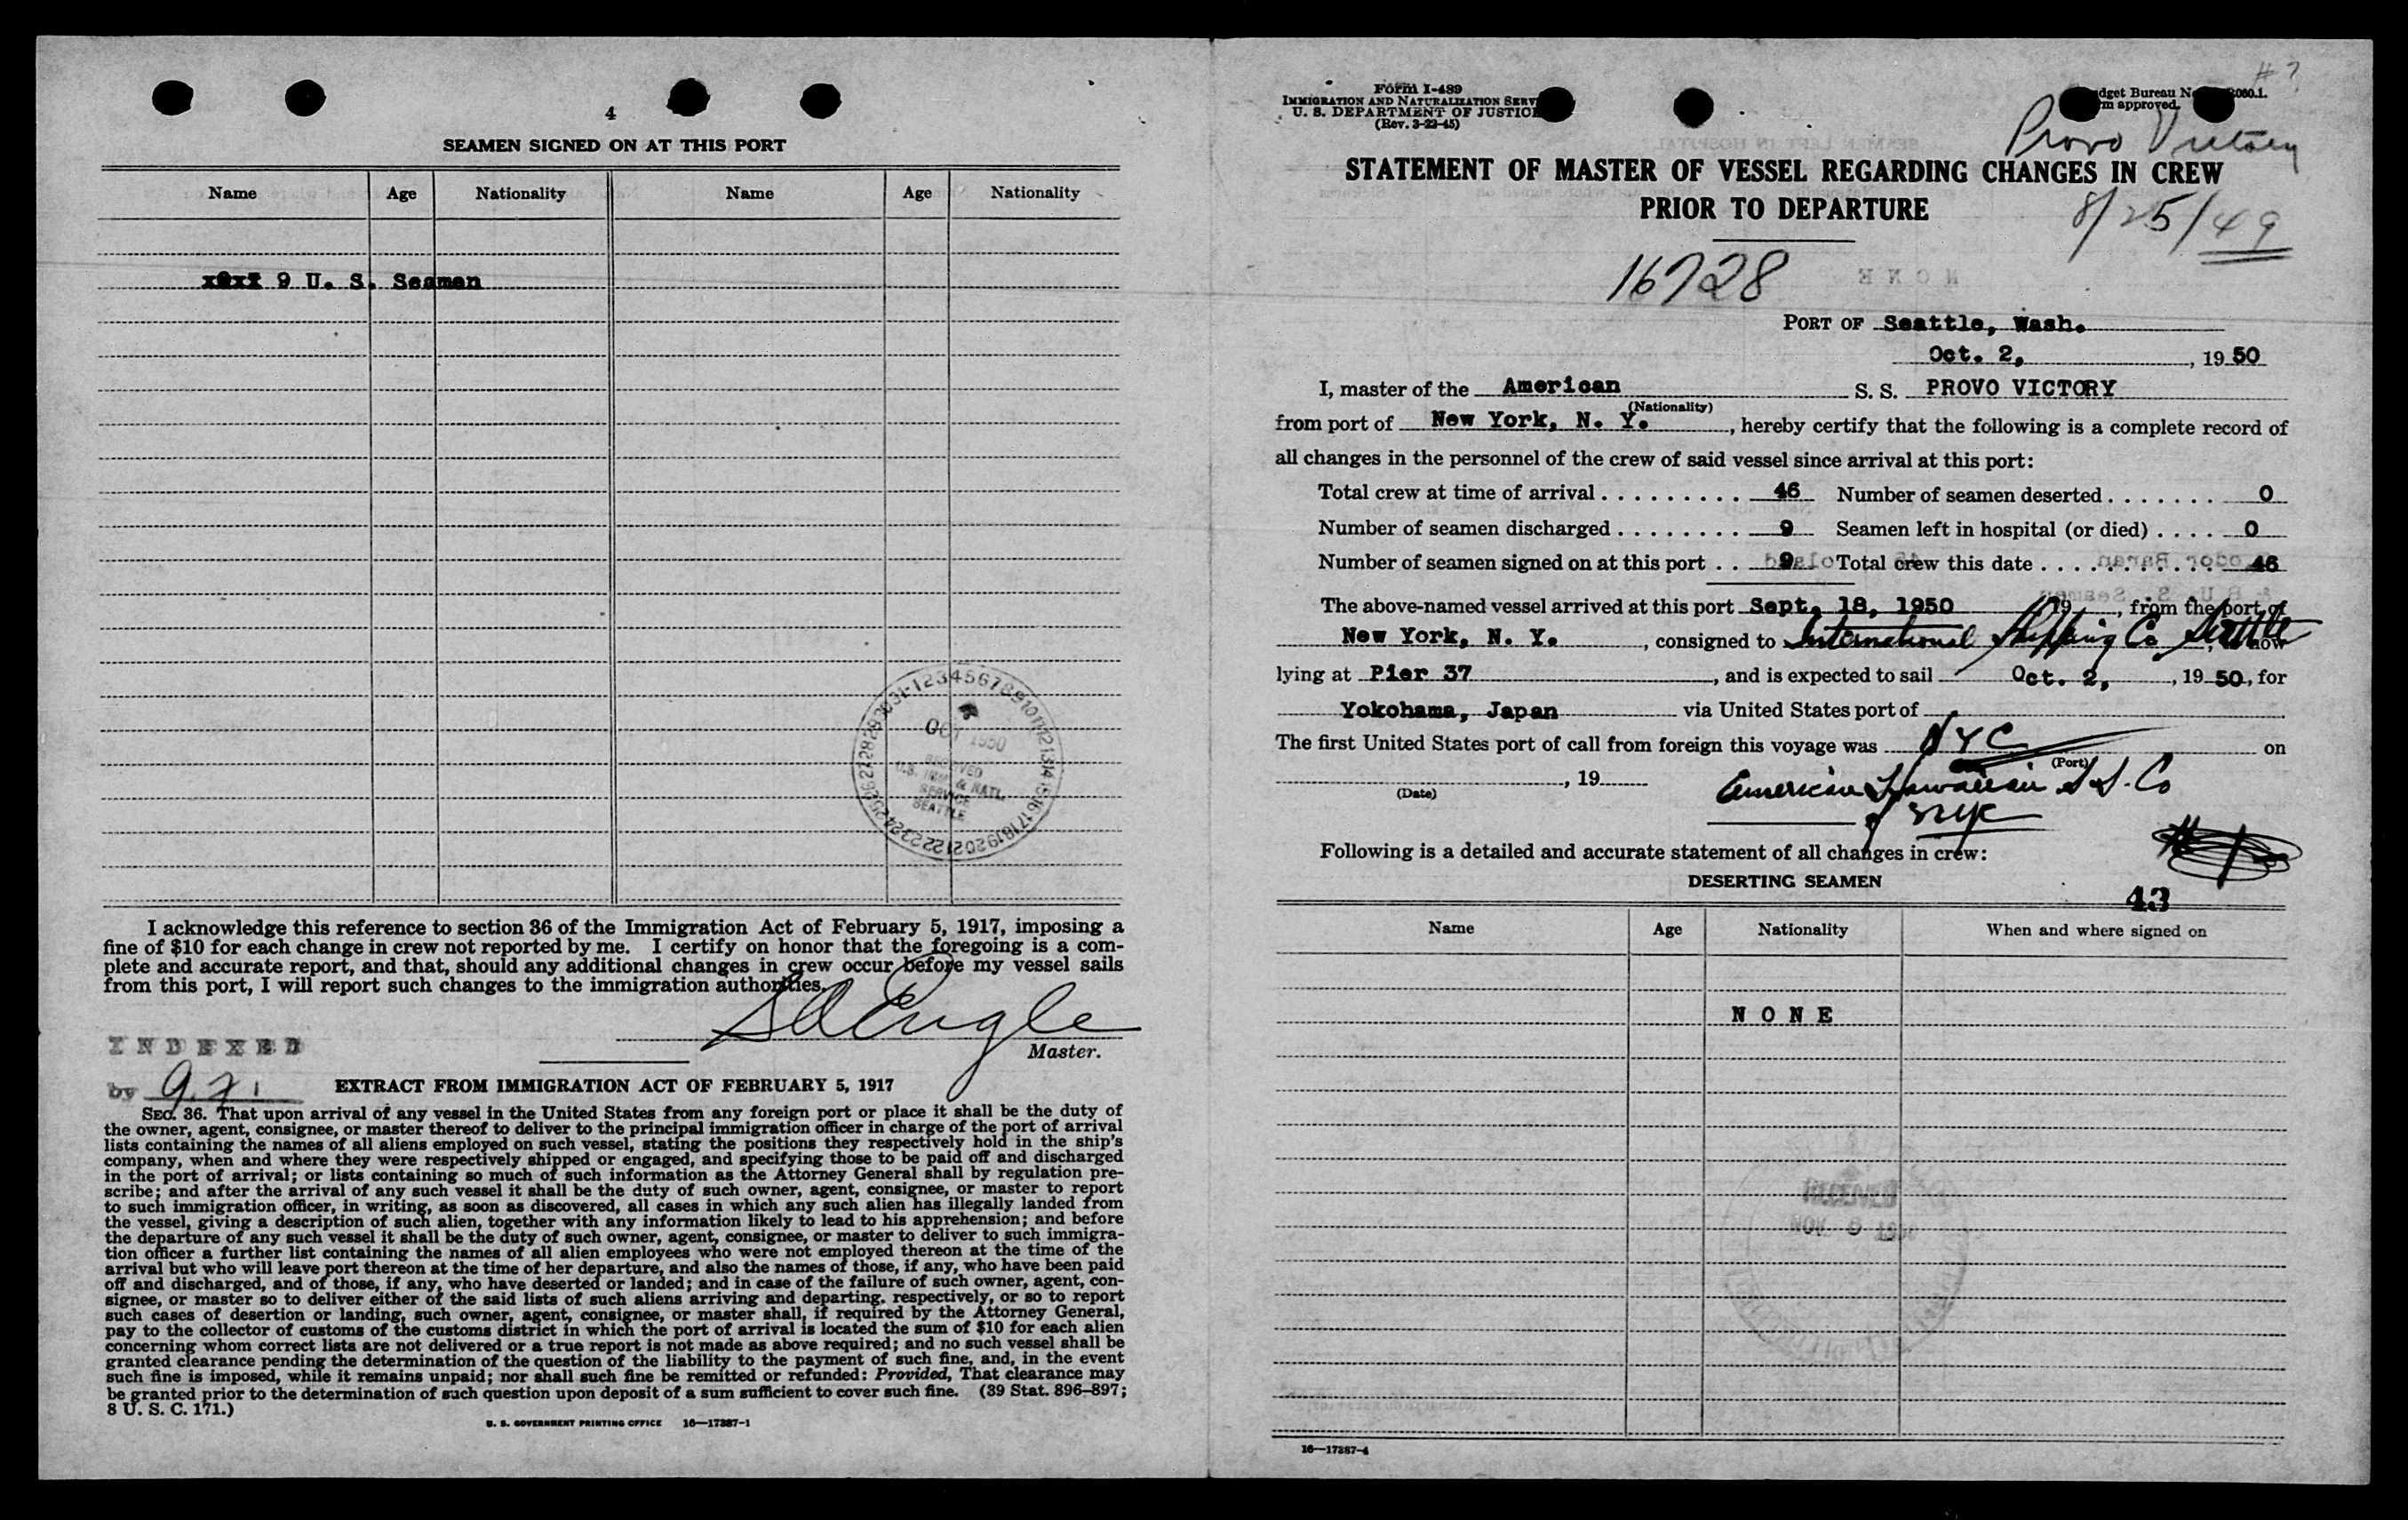 4
SEAMEN SIGNED ON AT THIS PORT
Name Age Nationality Name Age Nationality
9 U. S. Seamen
OCT 1950
RECEIVED
U.S. IMM. & NATL.
SERVICE
SEATTLE
I acknowledge this reference to section 36 of the Immigration Act of February 5, 1917, imposing a
fine of $10 for each change in crew not reported by me. I certify on honor that the foregoing is a com-
plete and accurate report, and that, should any additional changes in crew occur before my vessel sails
from this port, I will report such changes to the immigration authorities.
Engle
Master.
INDEXED
by
EXTRACT FROM IMMIGRATION ACT OF FEBRUARY 5, 1917
SEC. 36. That upon arrival of any vessel in the United States from any foreign port or place it shall be the duty of
the owner, agent, consignee, or master thereof to deliver to the principal immigration officer in charge of the port of arrival
lists containing the names of all aliens employed on such vessel, stating the positions they respectively hold in the ship's
company, when and where they were respectively shipped or engaged, and specifying those to be paid off and discharged
in the port of arrival; or lists containing so much of such information as the Attorney General shall by regulation pre-
scribe; and after the arrival of any such vessel it shall be the duty of such owner, agent, consignee, or master to report
to such immigration officer, in writing, as soon as discovered, all cases in which any such alien has illegally landed from
the vessel, giving a description of such alien, together with any information likely to lead to his apprehension; and before
the departure of any such vessel it shall be the duty of such owner, agent, consignee, or master to deliver to such immigra-
tion officer a further list containing the names of all alien employees who were not employed thereon at the time of the
arrival but who will leave port thereon at the time of her departure, and also the names of those, if any, who have been paid
off and discharged, and of those, if any, who have deserted or landed; and in case of the failure of such owner, agent, con-
signee, or master so to deliver either of the said lists of such aliens arriving and departing. respectively, or so to report
such cases of desertion or landing, such owner, agent, consignee, or master shall, if required by the Attorney General,
pay to the collector of customs of the customs district in which the port of arrival is located the sum of $10 for each alien
concerning whom correct lists are not delivered or a true report is not made as above required; and no such vessel shall be
granted clearance pending the determination of the question of the liability to the payment of such fine, and, in the event
such fine is imposed, while it remains unpaid; nor shall such fine be remitted or refunded: Provided, That clearance may
be granted prior to the determination of such question upon deposit of a sum sufficient to cover such fine. (39 Stat. 896–897;
8 U. S. C. 171.)
U. S. GOVERNMENT PRINTING OFFICE 16—17387-1
Form I-489
IMMIGRATION AND NATURALIZATION SERV
U. S. DEPARTMENT OF JUSTICE
(Rev. 3-23-45)
# 7
dget Bureau N 060.1.
m approved.
Provo Victory
STATEMENT OF MASTER OF VESSEL REGARDING CHANGES IN CREW
PRIOR TO DEPARTURE
8/25/49
16728
PORT OF Seattle, Wash.
Oct. 2, , 19 50
I, master of the American S. S. PROVO VICTORY
(Nationality)
from port of New York, N. Y. , hereby certify that the following is a complete record of
all changes in the personnel of the crew of said vessel since arrival at this port:
Total crew at time of arrival . . . . . . . . . . 46 Number of seamen deserted . . . . . . . 0
Number of seamen discharged . . . . . . . . 9 Seamen left in hospital (or died) . . . . 0
Number of seamen signed on at this port . . 9 Total crew this date . . . . . . . . . . . . 46
The above-named vessel arrived at this port Sept. 18, 1950 , 19 , from the port of
New York, N. Y. , consigned to International Shipping Co Seattle , now
lying at Pier 37 , and is expected to sail Oct. 2, , 19 50, for
Yokohama, Japan via United States port of
The first United States port of call from foreign this voyage was NYC on
(Port)
, 19
(Date)
American Hawaiian S.S. Co
NYC
Following is a detailed and accurate statement of all changes in crew:
DESERTING SEAMEN
43
Name Age Nationality When and where signed on
N O N E
RECEIVED
NOV 9 1950
16—17387-4